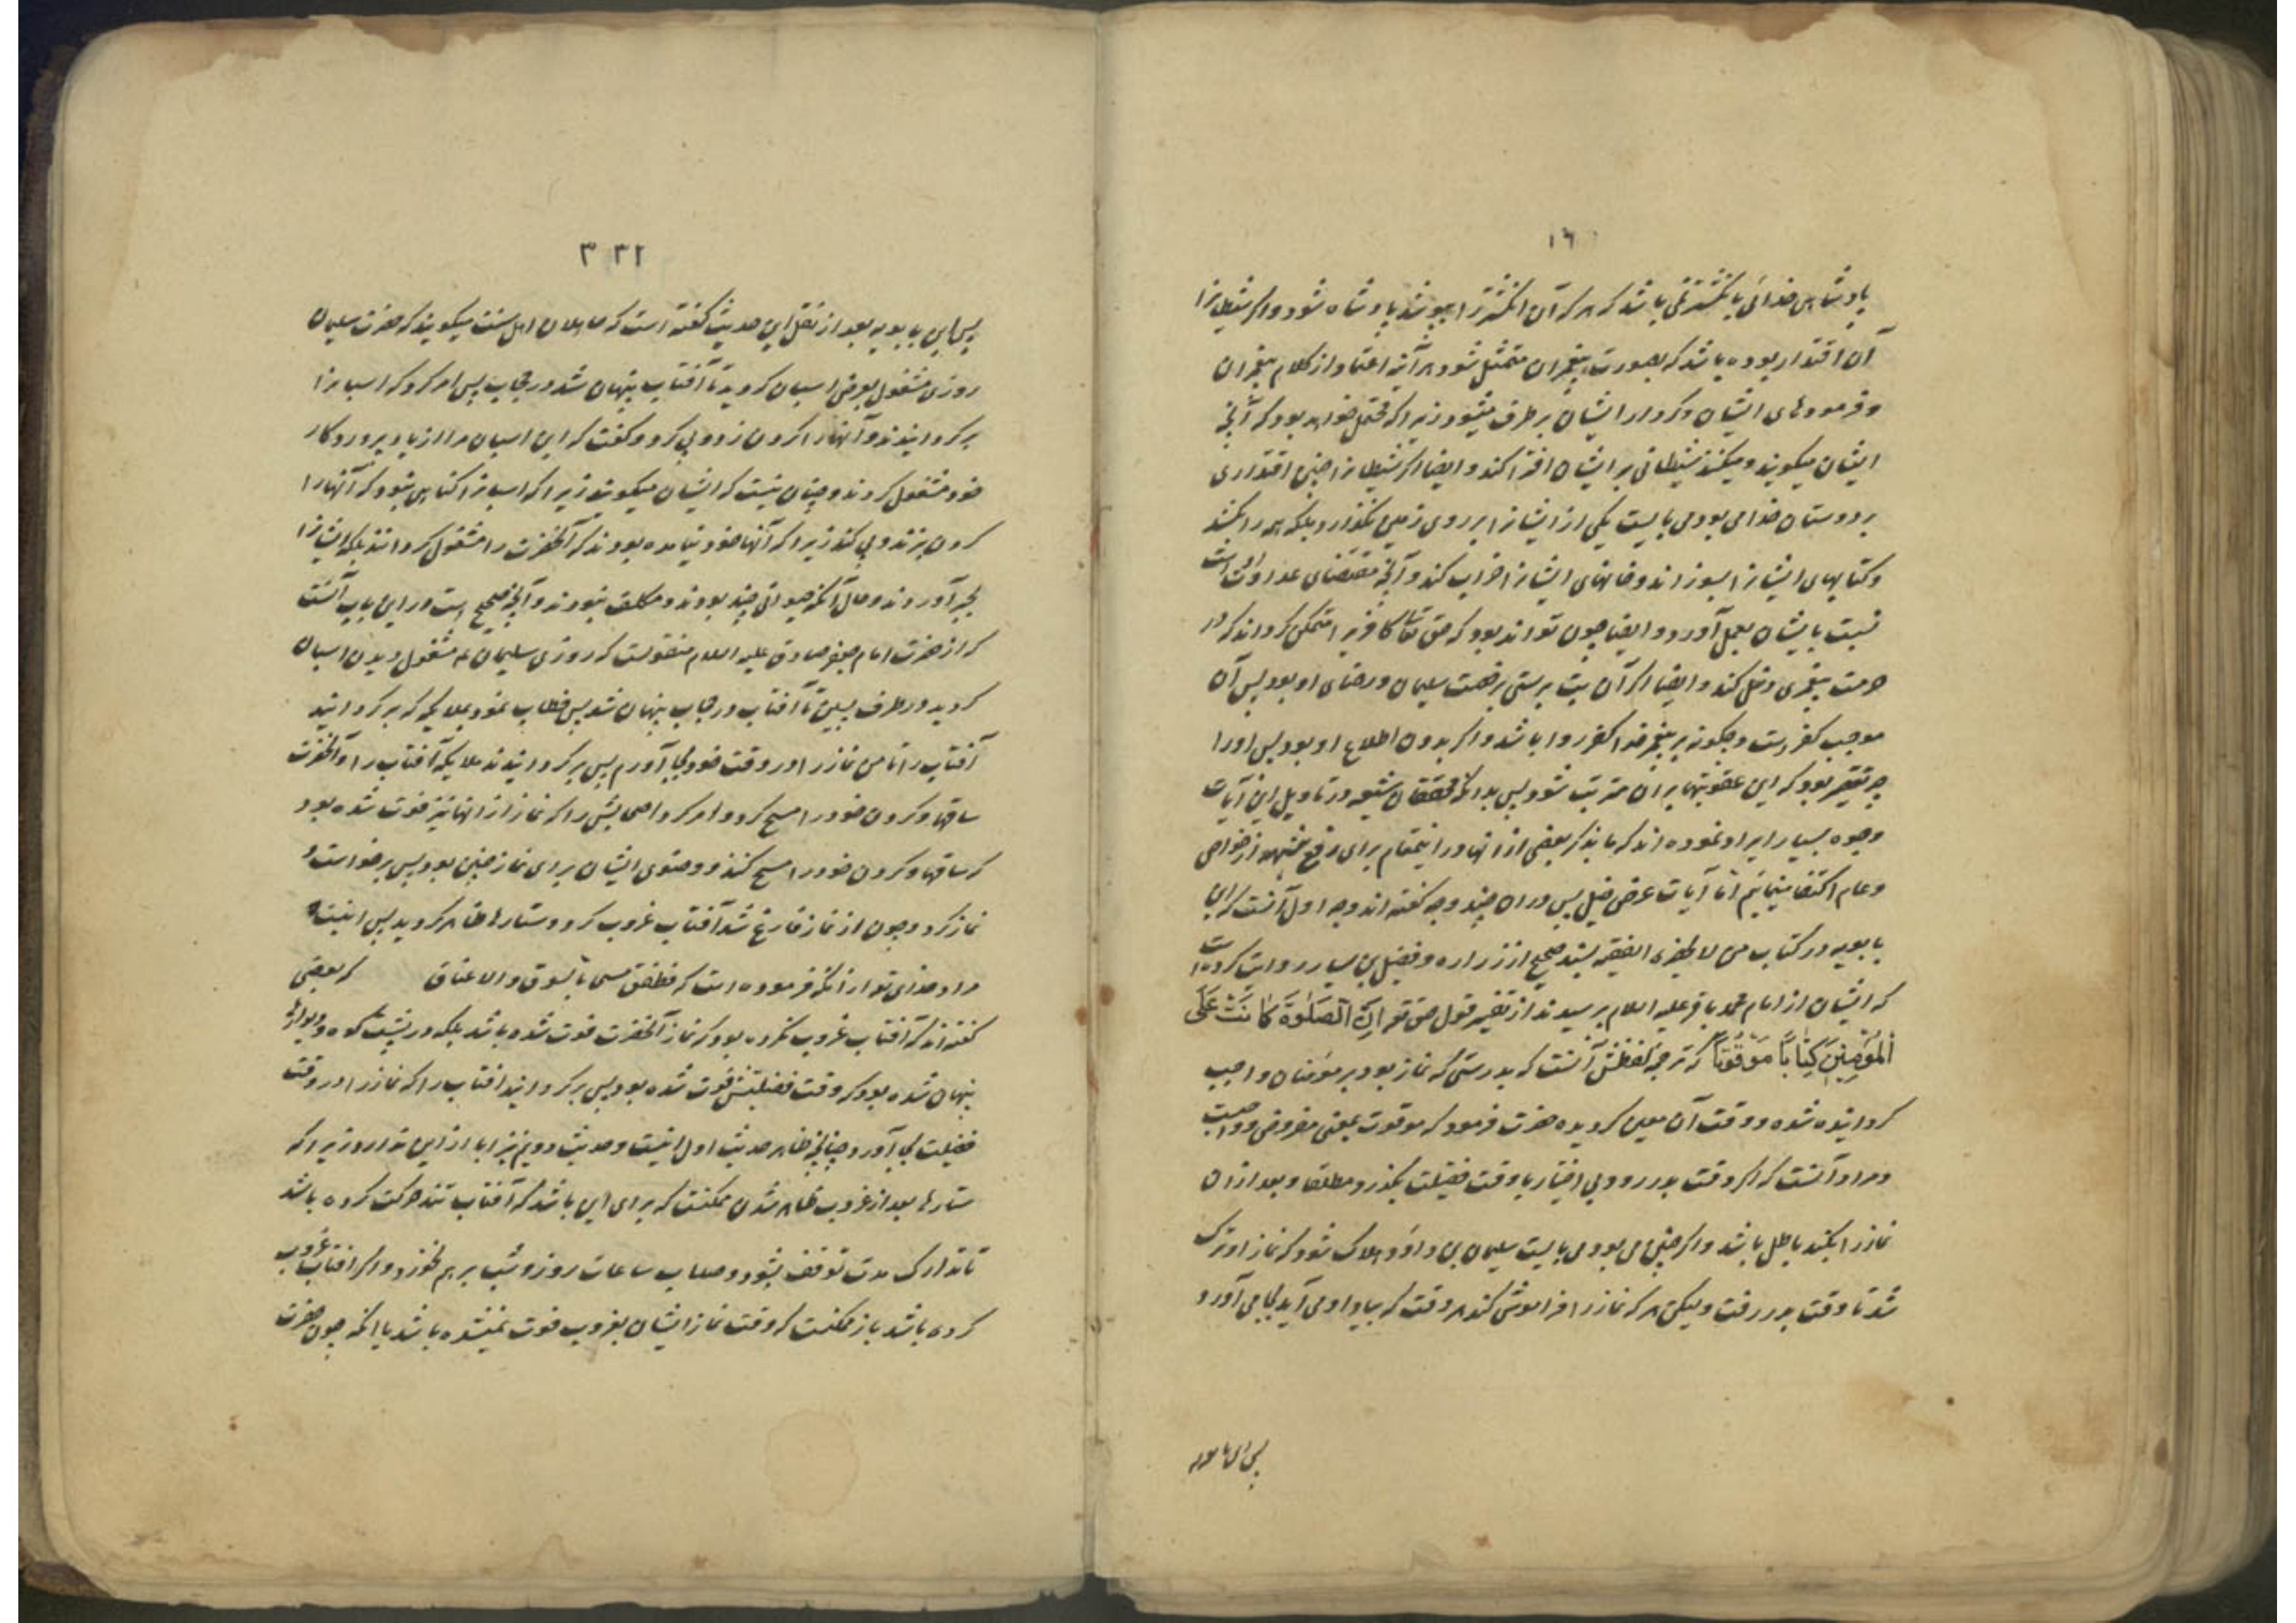 ۱۶
پادشاهی خدائی بانگشتری باشد که هر که آن انگشتر را بپوشد پادشاه شود و اگر شیطانرا
آن اقتدار بوده باشد که بصورت پیغمبران متمثل شود هر آینه اعتماد از کلام پیغمبران
و فرمودهای ایشان و کردار ایشان بر طرف میشود زیرا که محتمل خواهد بود که آنچه
ایشان میگویند و میکنند شیطانی بر ایشان افترا کند و ایضا اگر شیطانرا چنین اقتداری
بر دوستان خدا می بود می بایست یکی از ایشانرا بر روی زمین نگذارد بلکه همه را بکشد
و کتابهای ایشانرا بسوزاند و خانهای ایشانرا خراب کند و آنچه مقتضای عداوت است
نسبت بایشان بعمل آورد و ایضا چون تواند بود که حق تعالی کافریرا متمکن گرداند که در
حرمت پیغمبری دخل کند و ایضا اگر آن بت پرستی برخصت سلیمان و رضای او بود پس آن
موجب کفر است و چگونه بر پیغمبر خدا کفر روا باشد و اگر بدون اطلاع او بود پس او را
چه تقصیر بود که این عقوبتها بر ان مترتب شود پس بدانکه محققان شیعه در تاویل این آیات
وجوه بسیار ایراد نموده اند که ما بذکر بعضی از انها در اینمقام برای رفع شبهه از خواص
و عام اکتفا مینمائیم امّا آیات عرض خیل پس در ان چند وجه گفته اند وجه اول آنست که ابن
بابویه در کتاب من لا یحضره الفقیه بسند صحیح از زراره و فضیل بن یسار روایت کرده است
که ایشان از امام محمد باقر علیه السلام پرسیدند از تفسیر قول حق تع اِنَّ الصَلوٰةَ کانَتْ عَلَی
المُؤمِنینَ کِتاباً مَوْقُوتاً که ترجمه لفظش آنست که بدرستی که نماز بود بر مومنان واجب
گردانیده شده و وقت آن معین گردیده حضرت فرمود که موقوت بمعنی مفروض و واجبست
و مراد آنست که اگر وقت بدر رود بی اختیار یا وقت فضیلت بگذرد مطلقا و بعد از ان
نماز را بکند باطل باشد و اگر چنین می بود می بایست سلیمان بن داؤد هلاک شود که نماز او ترک
شد تا وقت بدر رفت ولیکن هر که نماز را فراموش کند هر وقت که بیاد او می آید بجا می آورد
پس ابن بابویه
۳۳۲
پس ابن بابویه بعد از نقل این حدیث گفته است که جاهلان اهل سنت میگویند که حضرت سلیمان
روزی مشغول بعرض اسبان گردید تا آفتاب پنهان شد در حجاب پس امر کرد که اسبانرا
برگردانیدند و آنها را گردن زد و پی کرد و گفت که این اسبان مرا از یاد پروردگار
خود مشغول کردند و چنان نیست که ایشان میگویند زیرا که اسبانرا گناهی نبود که آنها را
گردن بزند و پی کند زیرا که آنها خود نیامده بودند که آنحضرت را مشغول گردانند بلکه ایشانرا
بجبر آوردند و حال آنکه حیوانی چند بودند و مکلف نبودند و آنچه صحیح است در این باب آنست
که از حضرت امام جعفر صادق علیه السلام منقولست که روزی سلیمان ع مشغول دیدن اسبان
گردید در طرف پسین تا آفتاب در حجاب پنهان شد پس خطاب نمود بملائکه که برگردانید
آفتاب را تا من نماز را در وقت خود بجا آورم پس برگردانیدند ملایکه آفتاب را و آنحضرت
ساقها و گردن خود را مسح کرد و امر کرد اصحابش را که نماز از انها نیز فوت شده بود
که ساقها و گردن خود را مسح کنند و وضوی ایشان برای نماز چنین بود پس برخواست و
نماز کرد و چون از نماز فارغ شد آفتاب غروب کرد و ستارها ظاهر گردید پس اینست
مراد خدای تع از انکه فرموده است که فطفق مسحا بالسوق والاعناق که بعضی
گفته اند که آفتاب غروب نکرده بود که نماز آنحضرت فوت شده باشد بلکه در پشت کوه و دیوارها
پنهان شده بود که وقت فضیلتش فوت شده بود پس برگردانید افتاب را که نماز را در وقت
فضیلت بجا آورد چنانچه ظاهر حدیث اول اینست و حدیث دویم نیز ابا از این ندارد زیرا که
ستارها بعد از غروب ظاهر شدن ممکنست که برای این باشد که آفتاب تند حرکت کرده باشد
تا تدارک مدت توقف بشود و حساب ساعات روز و شب بر هم نخورد و اگر افتاب غروب
کرده باشد باز ممکنست که وقت نماز ایشان بغروب فوت نمیشده باشد یا انکه چون حضرت